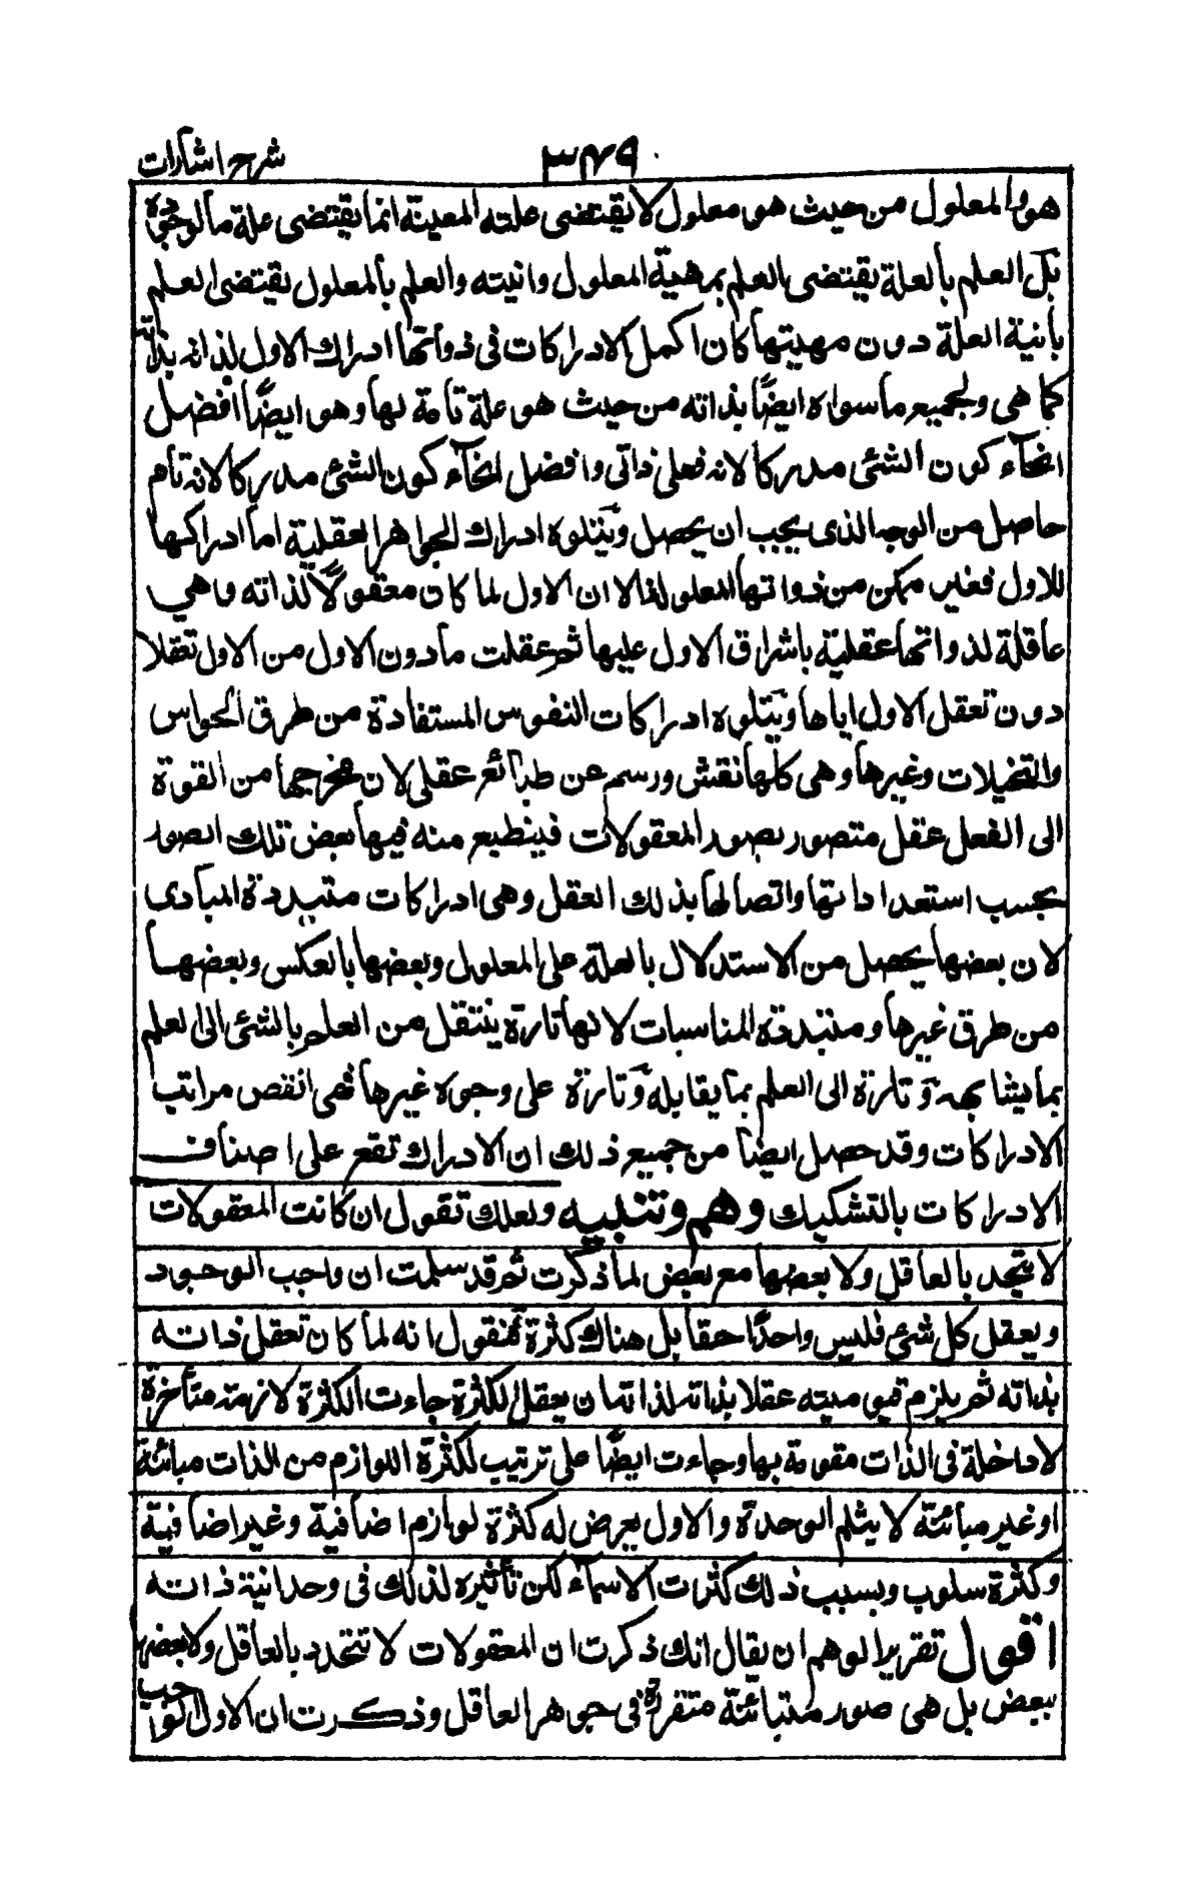 شرح اشارات
٣٤٩
هو والمعلول من حيث هو معلول لا يقتضى علته المعينة انما يقتضى علة ما لوجوده
بل العلم بالعلة يقتضى العلم بمهية المعلول وانيته والعلم بالمعلول يقتضى العلم
بانية العلة دون مهيتها كان اكمل الادراكات فى ذواتها ادراك الاول لذاته بذاته
كما هى ولجميع ما سواه ايضًا بذاته من حيث هو علة تامة لها وهو ايضًا افضل
انحآء كون الشئى مدركا لانه فعلى ذاتى وافضل انحآء كون الشئ مدركا لانه تام
حاصل من الوجه الذى يجب ان يحصل ويتلوه ادراك الجواهر العقلية اما ادراكها
للاول فغير ممكن من ذواتها المعلولة الا ان الاول لما كان معقولًا لذاته وهي
عاقلة لذواتها عقلية باشراق الاول عليها ثم عقلت ما دون الاول من الاول تعقلا
دون تعقل الاول اياها ويتلوه ادراكات النفوس المستفادة من طرق الحواس
والتخيلات وغيرها وهى كلها نقش ورسم عن طبائع عقلى لان مخرجها من القوة
الى الفعل عقل متصور بصور المعقولات فينطبع منه فيها بعض تلك الصور
بحسب استعداداتها واتصالها بذلك العقل وهى ادراكات متبددة المبادى
لان بعضها يحصل من الاستدلال بالعلة على المعلول وبعضها بالعكس وبعضها
من طرق غيرها ومتبددة المناسبات لانها تارة ينتقل من العلم بالشئى الى العلم
بما يشابهه وتارة الى العلم بما يقابله وتارة على وجوه غيرها فهى انقص مراتب
الادراكات وقد حصل ايضًا من جميع ذلك ان الادراك تقع على اصناف
الادراكات بالتشكيك وهم وتنبيه ولعلك تقول ان كانت المعقولات
لا يتحد بالعاقل ولا بعضها مع بعض لما ذكرت ثم قد سلمت ان واجب الوجود
ويعقل كل شئ فليس واحدًا حقا بل هناك كثرة فنقول انه لما كان تعقل ذاته
بذاته ثم يلزم قيوميته عقلا بذاته لذاته ان يعقل الكثرة جاءت الكثرة لازمة متأخرة
لا داخلة فى الذات مقومة بها وجاءت ايضًا على ترتيب لكثرة اللوازم من الذات مبائنة
او غير مبائنة لا يثلم الوحدة والاول يعرض له كثرة لوازم اضافية وغير اضافية
وكثرة سلوب وبسبب ذلك كثرت الاسمآء لكن تأثيره لذلك فى وحدانية ذاته
اقول تقرير الوهم ان يقال انك ذكرت ان المعقولات لا تتحد بالعاقل ولا بعضها
ببعض بل هى صور متبائنة متقررة فى جوهر العاقل وذكرت ان الاول الواجب